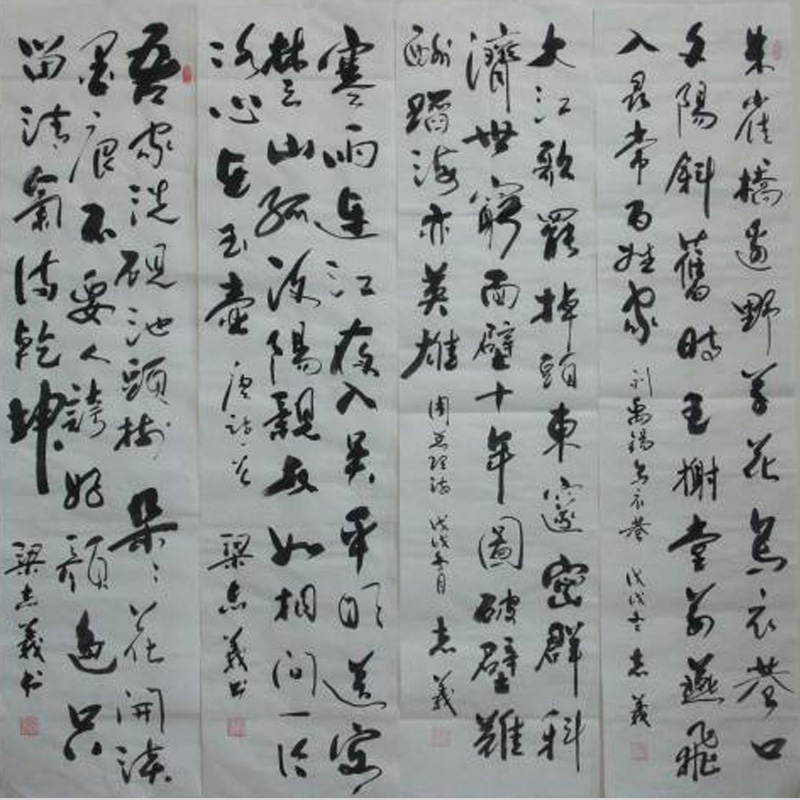 朱雀橋邊野草花烏衣巷口
夕陽斜舊時王榭堂前燕飛
入尋常百姓家 劉禹錫烏衣巷 戊戌冬 志義
大江歌罷掉頭東邃密群科
濟世窮面壁十年圖破壁難
酬蹈海亦英雄 周总理詩 戊戌 志義
寒雨連江夜入吳平明送客
楚山孤洛陽親友如相问一片
冰心在玉壺 唐詩一首 梁志義书
吾家洗硯池頭樹朵々花開淡
墨痕不要人誇好顏色只
留清氣满乾坤 梁志義书